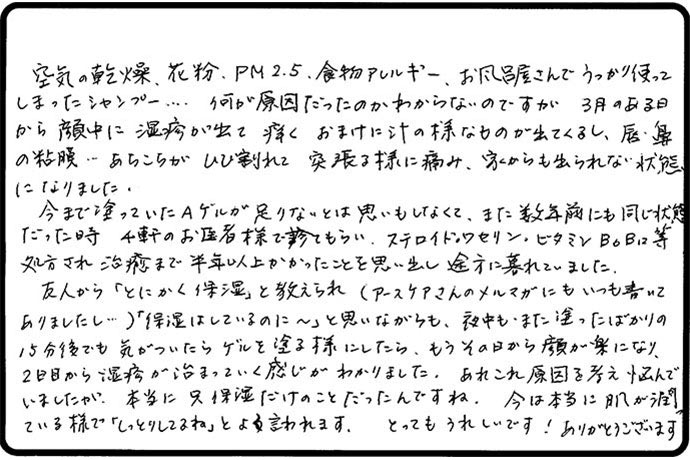 空気の乾燥、花粉、PM2.5、食物アレルギー、お風呂屋さんでうっかり使って
しまったシャンプー…. 何が原因だったのかわからないのですが 3月のある日
から 顔中に 湿疹が出て 痒く おまけに汁の様なものが出てくるし、唇・鼻
の粘膜… あちこちが ひび割れて 突張る様に痛み、家からも出られない状態
になりました.
今まで塗っていたAゲルが足りないとは思いもしなくて、また数年前にも同じ状態
だった時 4軒のお医者様で診てもらい. ステロイド・ワセリン・ビタミンB6B12等
処方され 治癒まで 半年以上かかったことを思い出し 途方に暮れていました.
友人から「とにかく保湿」と教えられ (アースケアさんのメルマガにもいつも書いて
ありましたし…)「保湿はしているのに〜」と思いながらも、夜中も・また塗ったばかりの
15分後でも 気がついたら ゲルを塗る様にしたら、もうその日から顔が楽になり、
2日目から湿疹が治まっていく感じがわかりました. あれこれ原因を考え悩んで
いましたが、本当に 只保湿だけのことだったんですね. 今は本当に 肌が潤っ
ている様で「しっとりしてるね」とよく言われます. とってもうれしいです! ありがとうございます